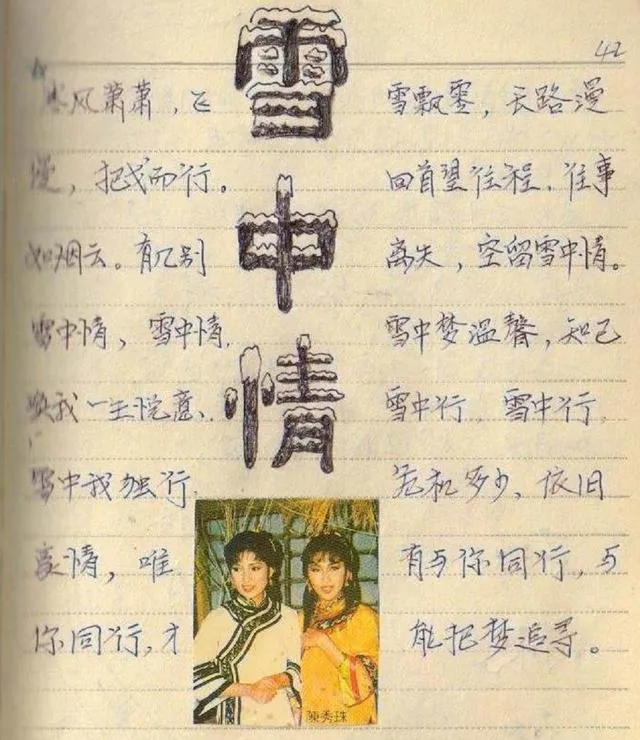 42
雪中情
寒风萧萧，飞雪飘零，长路漫
漫，把而行。回首望往程，往事
如烟云。有几别离失，空留雪中情。
雪中情，雪中情，雪中梦温馨，知己
我一生意、雪中行，雪中行，
雪中我独行，危机多少，依旧
豪情，唯有与你同行，与
你同行，才能把梦追寻。
陳秀珠